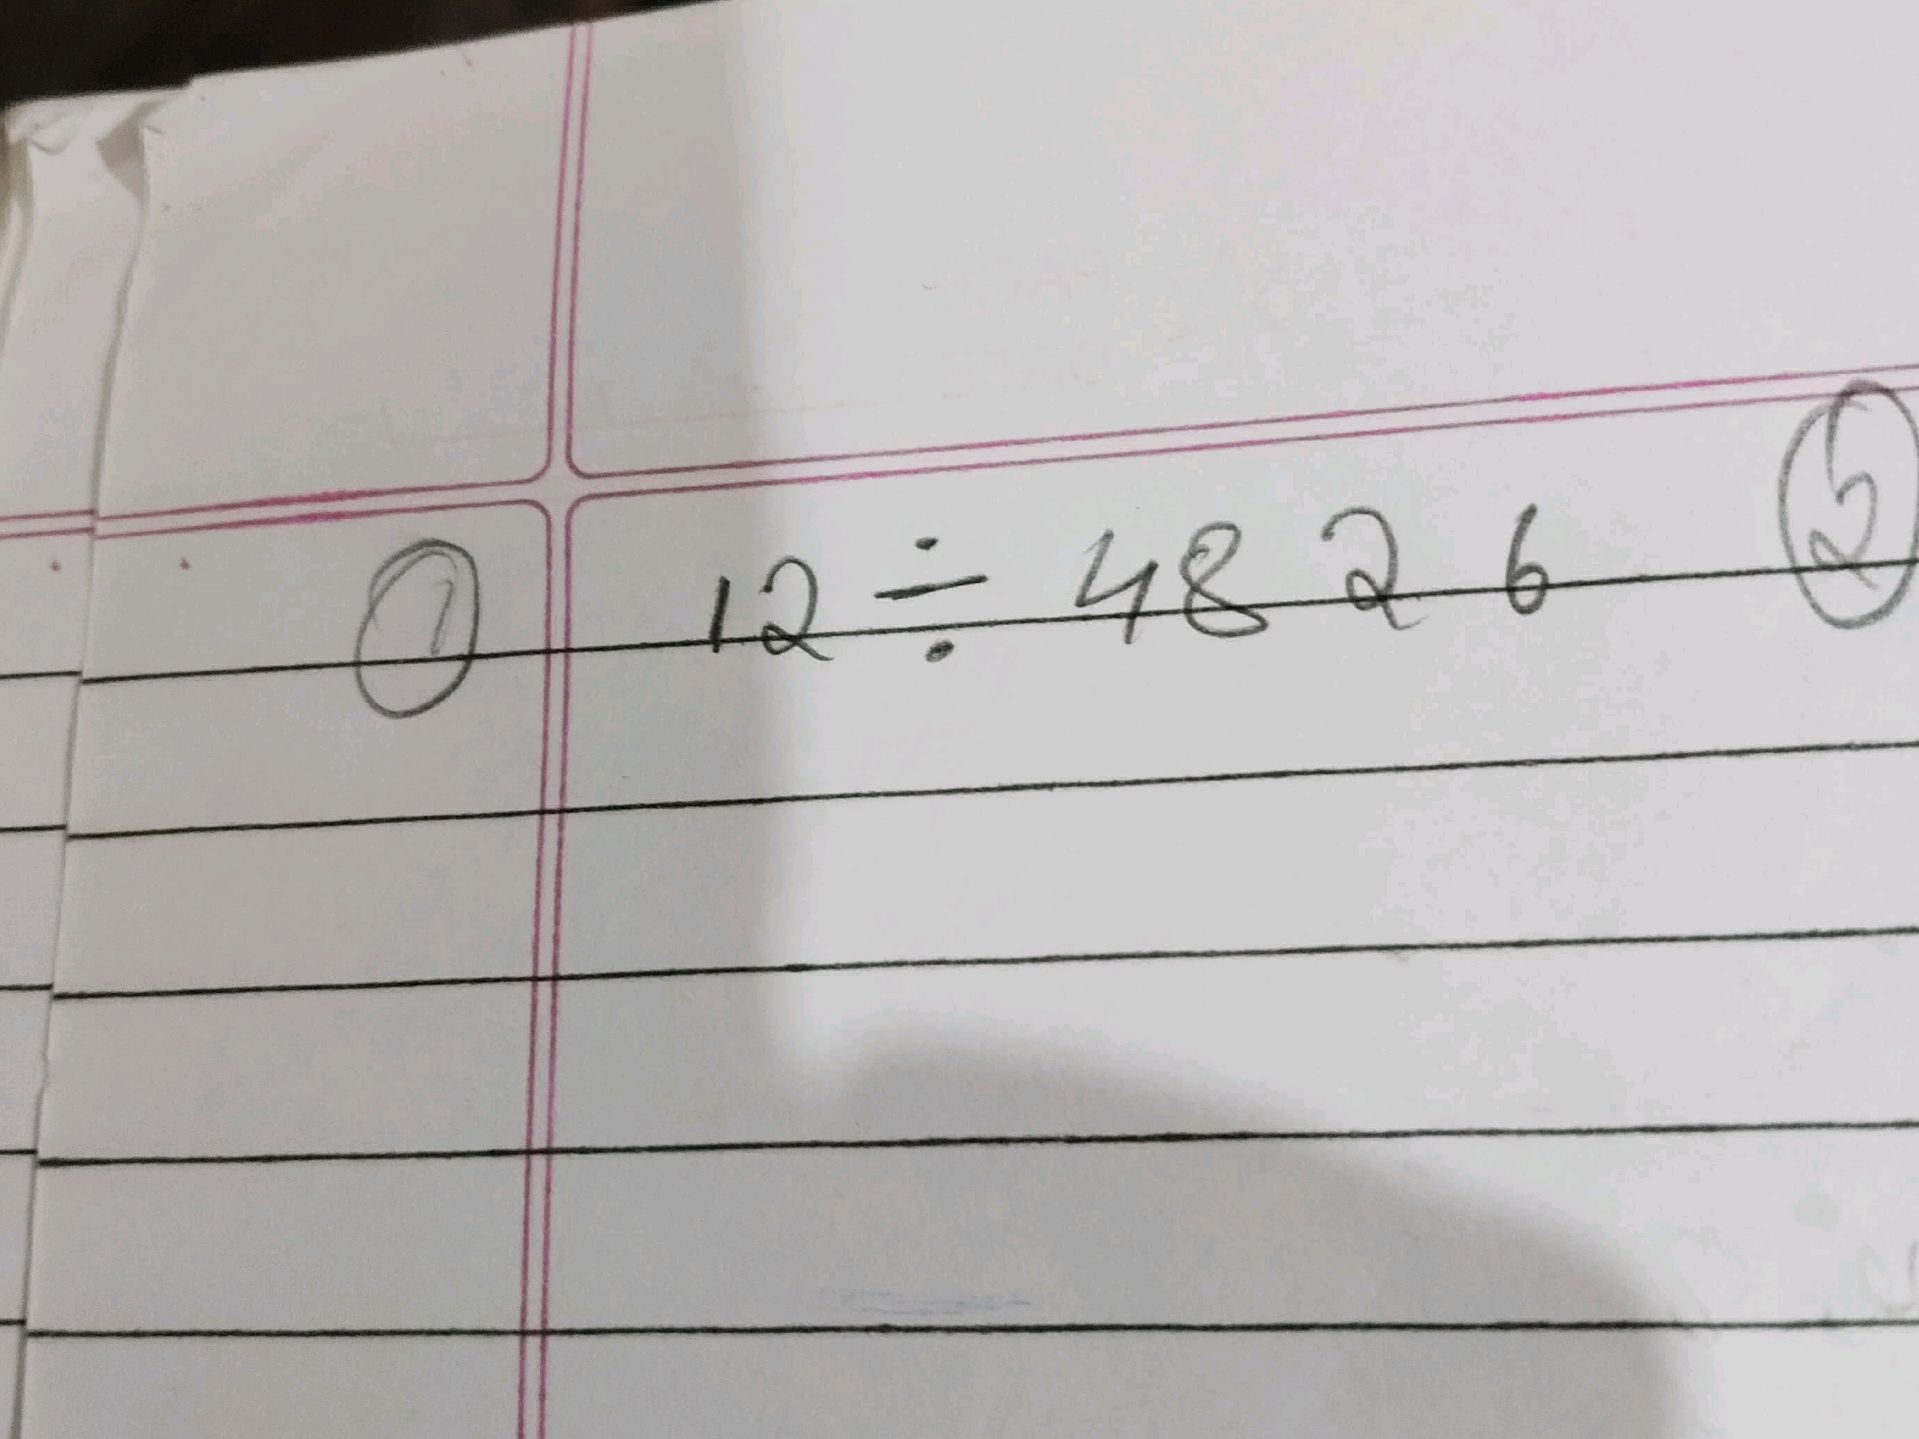 1 12 ÷ 4826 2